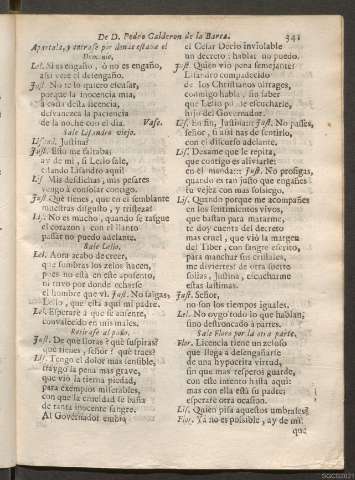 De D. Pedro Calderon de la Barca. 341
Apartala, y entrase por donde estava el
Demonio.
Lel. Si es engaño, ò no es engaño,
assi verè el desengaño.
Just. No te lo quiero escusar,
porque la inocencia mia,
à costa desta licencia,
desvanezca la paciencia
de la noche con el dia. Vase.
Sale Lisandro viejo.
Lisand. Justina?
Just. Esto me faltaba;
ay de mi, si Lelio sale,
estando Lisandro aqui!
Lis. Mis desdichas, mis pesares
vengo à consolar contigo.
Just. Què tienes, que en el semblante
muestras disgusto, y tristeza?
Lis. No es mucho, quando se rasgue
el corazon; con el llanto
passar no puedo adelante.
Sale Lelio.
Lel. Aora acabo de creer,
que sombras los zelos hacen,
pues no està en este aposento,
ni tuvo por donde echarse
el hombre que vì. Just. No salgas,
Lelio, que està aqui mi padre.
Lel. Esperarè à que se ausente,
convalecido en mis males.
Retirase al paño.
Just. De què lloras? què suspiras?
què tienes, señor? què traes?
Lis. Tengo el dolor mas sensible,
traygo la pena mas grave,
que viò la tierna piedad,
para exemplos miserables,
con que la crueldad se baña
de tanta inocente sangre.
Al Governador embia
el Cesar Decio inviolable
un decreto; hablar no puedo.
Just. Quien viò pena semejante?
Lisandro compadecido
de los Christianos ultrages,
conmigo habla, sin saber
que Lelio puede escucharle,
hijo del Governador.
Lis. En fin, Justina: Just. No passes,
señor, si assi has de sentirlo,
con el discurso adelante.
Lis. Dexame que le repita,
que contigo es aliviarle:
en èl manda: Just. No prosigas,
quando es tan justo que engañes
tu vejez con mas sossiego.
Lis. Quando porque me acompañes
en los sentimientos vivos,
que bastan para matarme,
te doy cuenta del decreto
mas cruel, que viò la margen
del Tiber, con sangre escrito,
para manchar sus cristales,
me diviertes? de otra suerte
solias, Justina, escucharme
estas lastimas.
Just. Señor,
no son los tiempos iguales.
Lel. No oygo todo lo que hablan,
sino destroncado à partes.
Sale Floro por la otra parte.
Flor. Licencia tiene un zeloso
que llega à desengañarse
de una hypocrita virtud,
sin que mas respetos guarde,
con este intento hasta aqui:
mas con ella està su padre;
esperarè otra ocasion.
Lis. Quien pisa aquestos umbrales?
Flor. Yà no es possible, ay de mi!
que